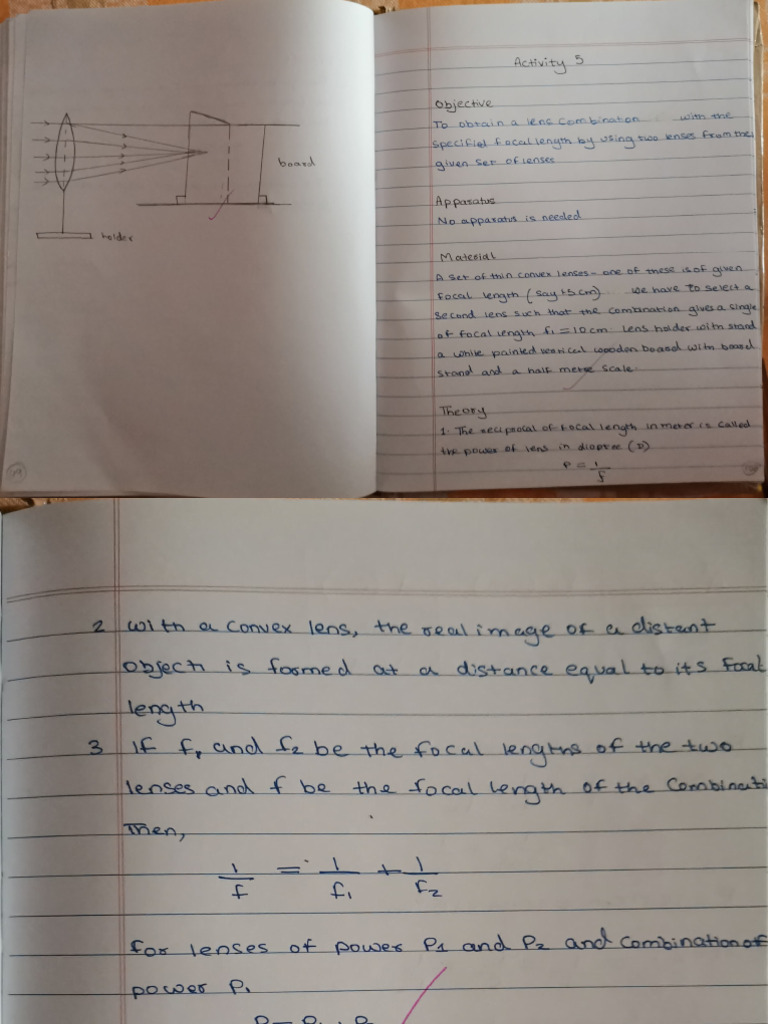 board
holder
Activity 5
Objective
To obtain a lens combination with the
specified focal length by using two lenses from the
given set of lenses
Apparatus
No apparatus is needed
Material
A set of thin convex lenses - one of these is of given
focal length (say 15 cm) we have to select a
second lens such that the combination gives a single
of focal length f1 = 10 cm lens holder with stand
a while painted vertical wooden board with board
stand and a half metre scale.
Theory
1. The reciprocal of focal length in meter is called
the power of lens in dioptre (D)
P = 1/f
2 With a convex lens, the real image of a distant
object is formed at a distance equal to its focal
length
3 If f1 and f2 be the focal lengths of the two
lenses and f be the focal length of the Combinati
Then,
1/f = 1/f1 + 1/f2
for lenses of power P1 and P2 and combination of
power P.